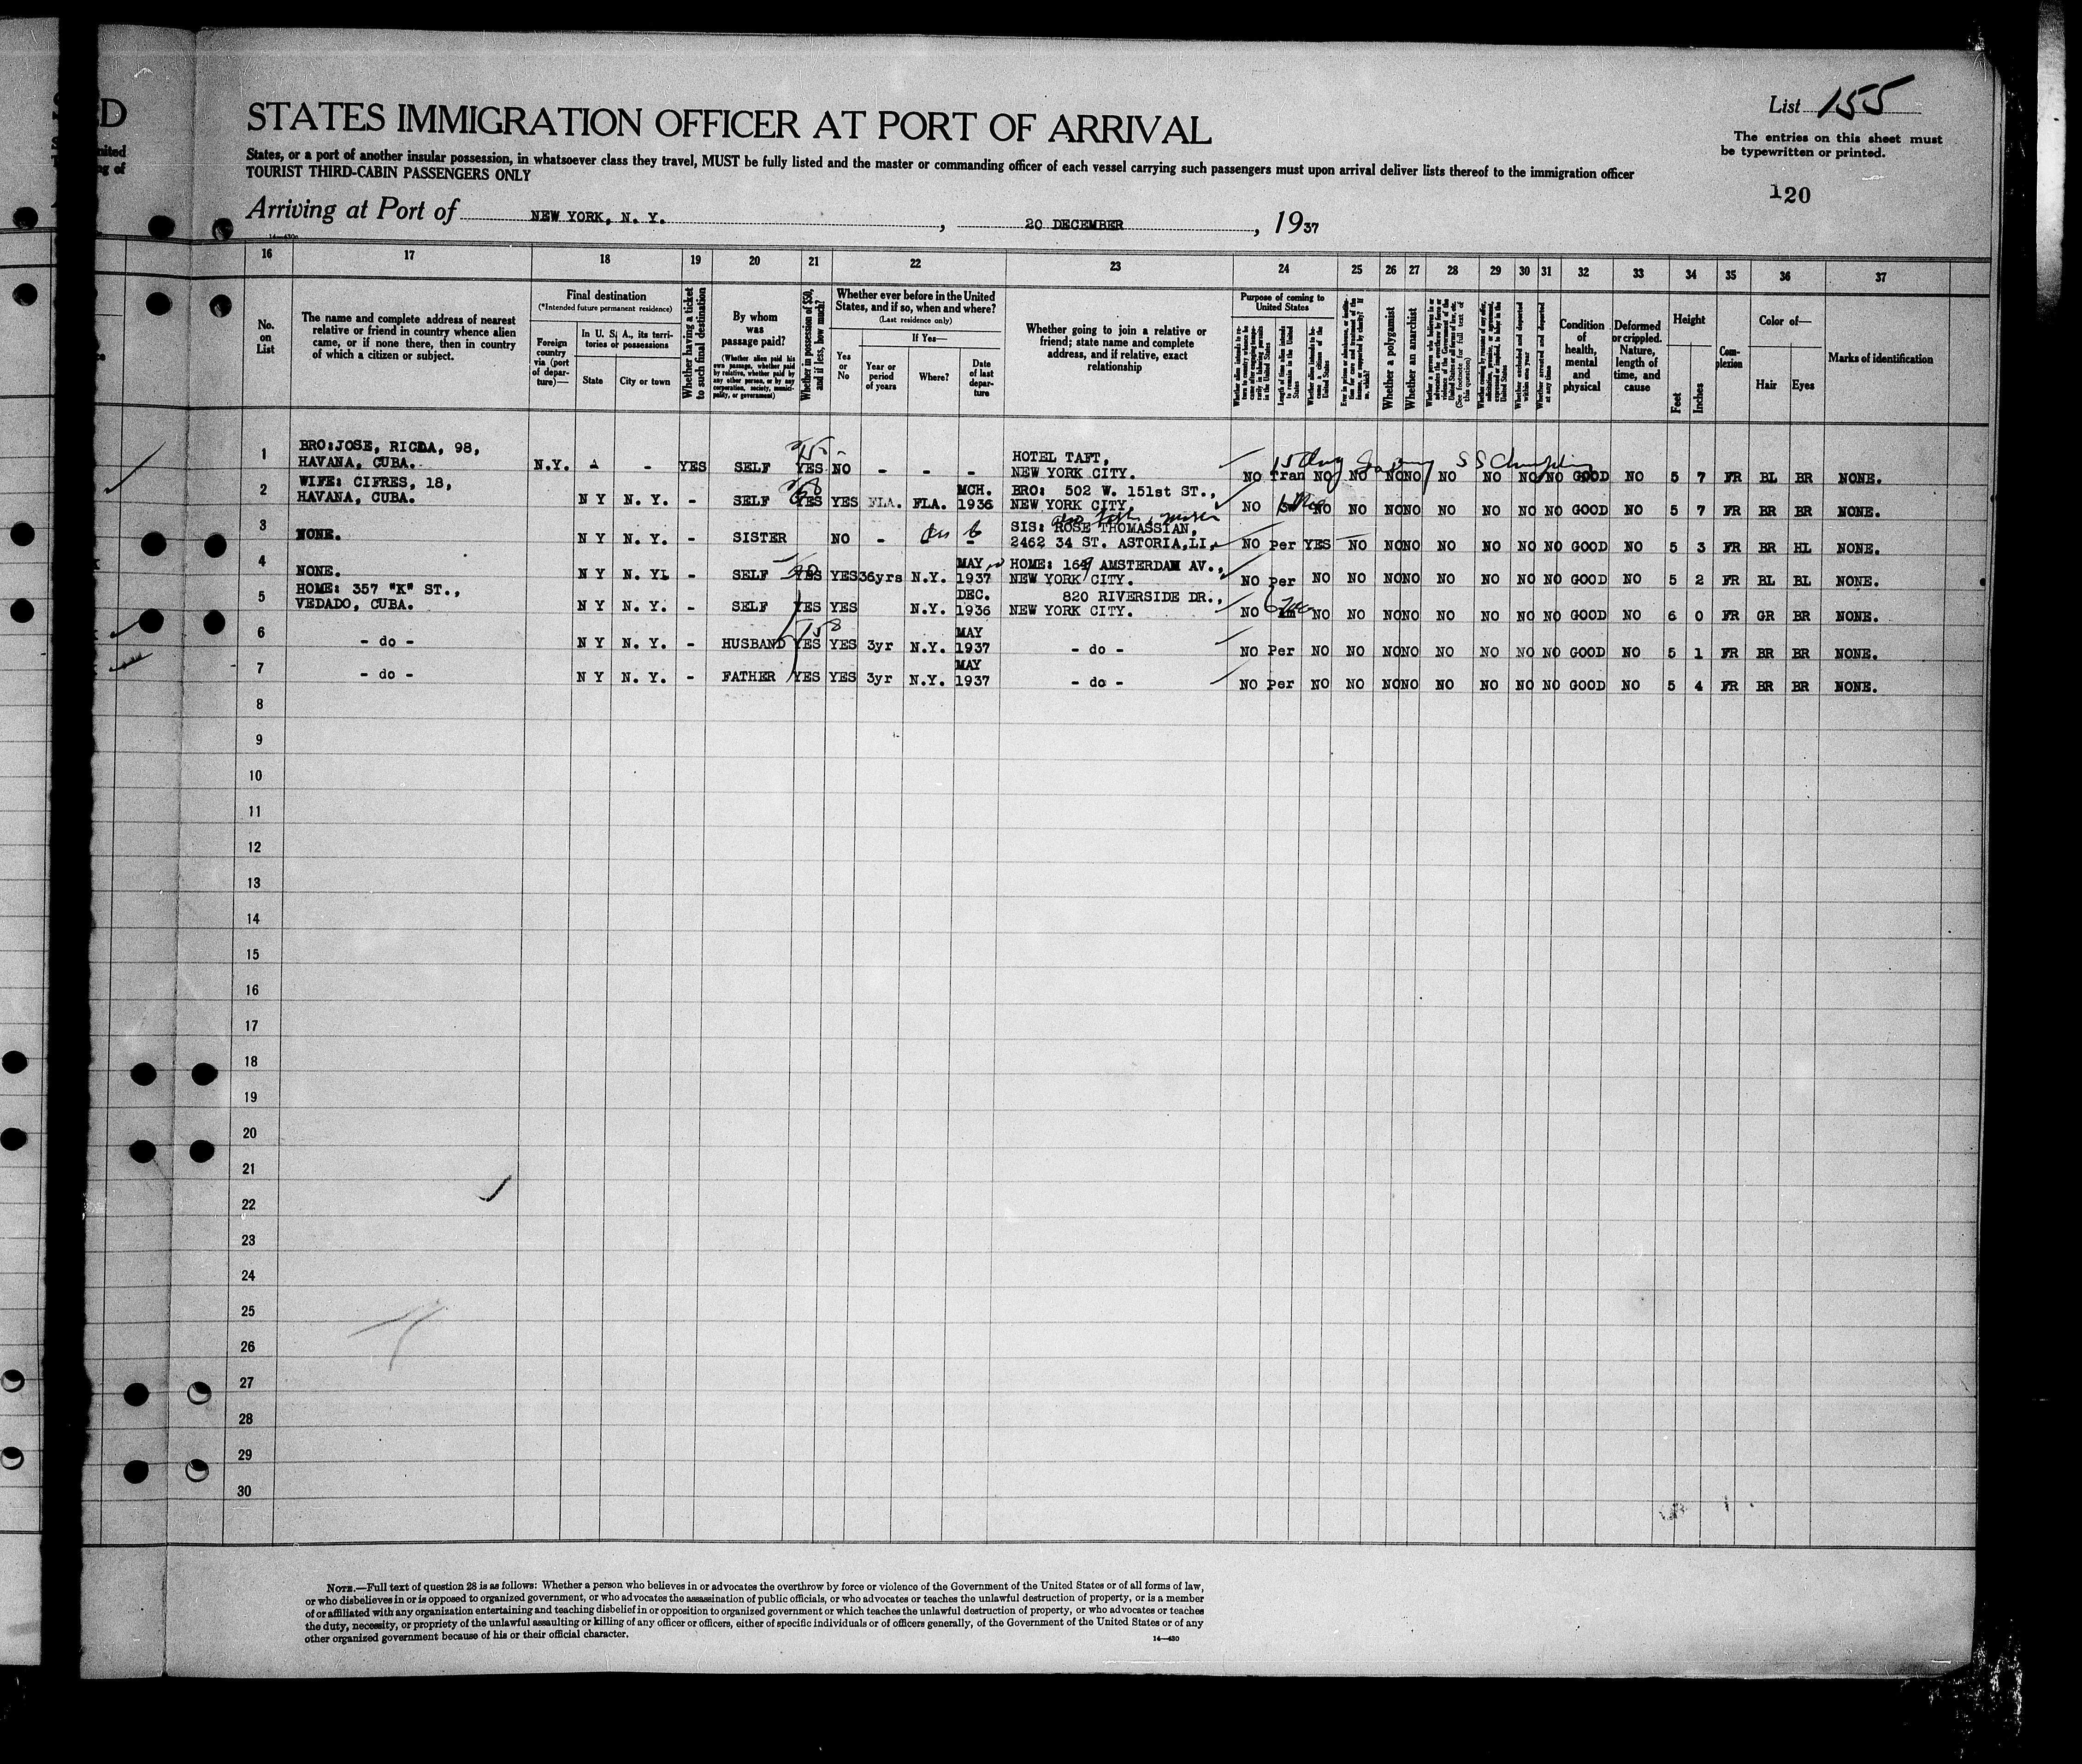 D
List 155
STATES IMMIGRATION OFFICER AT PORT OF ARRIVAL
The entries on this sheet must
be typewritten or printed.
States, or a port of another insular possession, in whatsoever class they travel, MUST be fully listed and the master or commanding officer of each vessel carrying such passengers must upon arrival deliver lists thereof to the immigration officer
TOURIST THIRD-CABIN PASSENGERS ONLY
120
Arriving at Port of NEW YORK, N. Y., 20 DECEMBER, 1937
16 17 18 19 20 21 22 23 24 25 26 27 28 29 30 31 32 33 34 35 36 37
No. on List
The name and complete address of nearest
relative or friend in country whence alien
came, or if none there, then in country
of which a citizen or subject.
Final destination
(*Intended future permanent residence)
Foreign country via (port of departure)—
In U. S. A., its territories or possessions
State
City or town
Whether having a ticket to such final destination
By whom was passage paid?
(Whether alien paid his own passage, whether paid by relative, whether paid by any other person, or by any corporation, society, municipality, or government)
Whether in possession of $50, and if less, how much?
Whether ever before in the United
States, and if so, when and where?
(Last residence only)
Yes or No
If Yes—
Year or period of years
Where?
Date of last departure
Whether going to join a relative or
friend; state name and complete
address, and if relative, exact
relationship
Purpose of coming to United States
Whether a polygamist
Whether an anarchist
Condition of health, mental and physical
Deformed or crippled. Nature, length of time, and cause
Height
Feet
Inches
Complexion
Color of—
Hair
Eyes
Marks of identification
1 BRO:JOSE, RICLA, 98,
HAVANA, CUBA. N.Y. - YES SELF YES NO - - - HOTEL TAFT,
NEW YORK CITY. NO Tran NO NO NO NO NO NO NO NO GOOD NO 5 7 FR BL BR NONE.
2 WIFE: CIFRES, 18,
HAVANA, CUBA. N Y N. Y. - SELF YES YES FLA. FLA. MCH. 1936 BRO: 502 W. 151st ST.,
NEW YORK CITY. NO NO NO NO NO NO NO NO NO GOOD NO 5 7 FR BR BR NONE.
3 NONE. N Y N. Y. - SISTER NO - - - SIS: ROSE THOMASSIAN,
2462 34 ST. ASTORIA,LI. NO Per YES NO NO NO NO NO NO NO GOOD NO 5 3 FR BR HL NONE.
4 NONE. N Y N. Y. - SELF YES YES 36yrs N.Y. MAY 1937 HOME: 1649 AMSTERDAM AV.,
NEW YORK CITY. NO Per NO NO NO NO NO NO NO NO GOOD NO 5 2 FR BL BL NONE.
5 HOME: 357 "K" ST.,
VEDADO, CUBA. N Y N. Y. - SELF YES YES N.Y. DEC. 1936 820 RIVERSIDE DR.,
NEW YORK CITY. NO NO NO NO NO NO NO NO NO GOOD NO 6 0 FR GR BR NONE.
6 - do - N Y N. Y. - HUSBAND YES YES 3yr N.Y. MAY 1937 - do - NO Per NO NO NO NO NO NO NO NO GOOD NO 5 1 FR BR BR NONE.
7 - do - N Y N. Y. - FATHER YES YES 3yr N.Y. MAY 1937 - do - NO Per NO NO NO NO NO NO NO NO GOOD NO 5 4 FR BR BR NONE.
8
9
10
11
12
13
14
15
16
17
18
19
20
21
22
23
24
25
26
27
28
29
30
NOTE.—Full text of question 28 is as follows: Whether a person who believes in or advocates the overthrow by force or violence of the Government of the United States or of all forms of law,
or who disbelieves in or is opposed to organized government, or who advocates the assassination of public officials, or who advocates or teaches the unlawful destruction of property, or is a member
of or affiliated with any organization entertaining and teaching disbelief in or opposition to organized government or which teaches the unlawful destruction of property, or who advocates or teaches
the duty, necessity, or propriety of the unlawful assaulting or killing of any officer or officers, either of specific individuals or of officers generally, of the Government of the United States or of any
other organized government because of his or their official character.
14—430